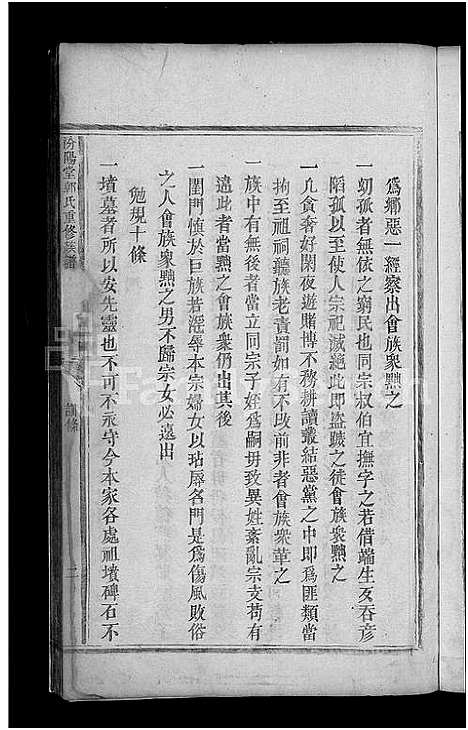 為鄉惡一經察出會族衆黜之
一幼孤者無依之窮民也同宗叔伯宜撫字之若借端生歹吞
陷孤以至使人宗祀滅絶此即盜跖之徒會族衆黜之
一凡貪奢好閑夜遊賭博不務耕讀叢結惡黨之中即爲匪類當
拘至祖祠聽族老責罰如有不改前非者會族衆革之
一族中有無後者當立同宗子姪爲嗣毋致異姓紊亂宗支苟有
違此者當黜之會族衆仍出其後
一閨門慎於巨族若淫辱本宗婦女以玷辱名門是爲傷風敗俗
之人會族衆黜之男不歸宗女必遠出
勉規十條
一墳墓者所以安先靈也不可不永守今本家各處祖墳碑石不
汾陽堂郭氏重修族譜
訓條
二